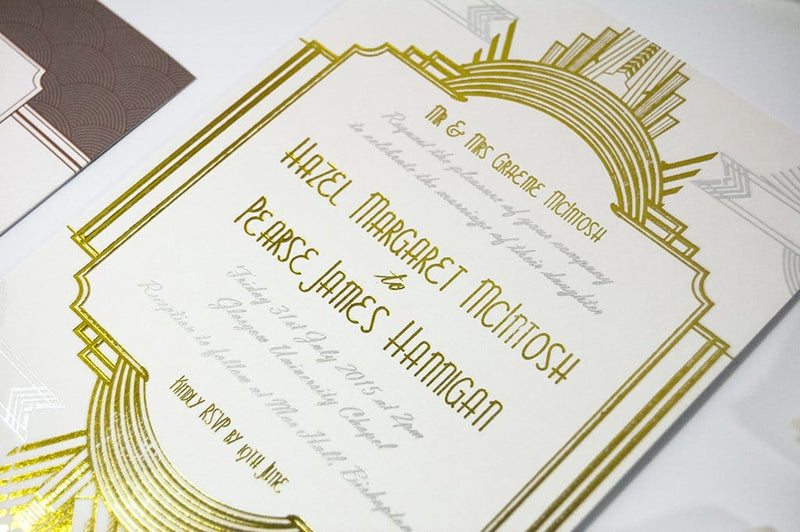 Mr & Mrs Graeme McIntosh
Request the pleasure of your company
to celebrate the marriage of their daughter
Hazel Margaret McIntosh
to
Pearse James Hannigan
Friday 31st July 2015 at 2pm
Glasgow University Chapel
Reception to follow at Mar Hall, Bishopton
Kindly RSVP by 19th June